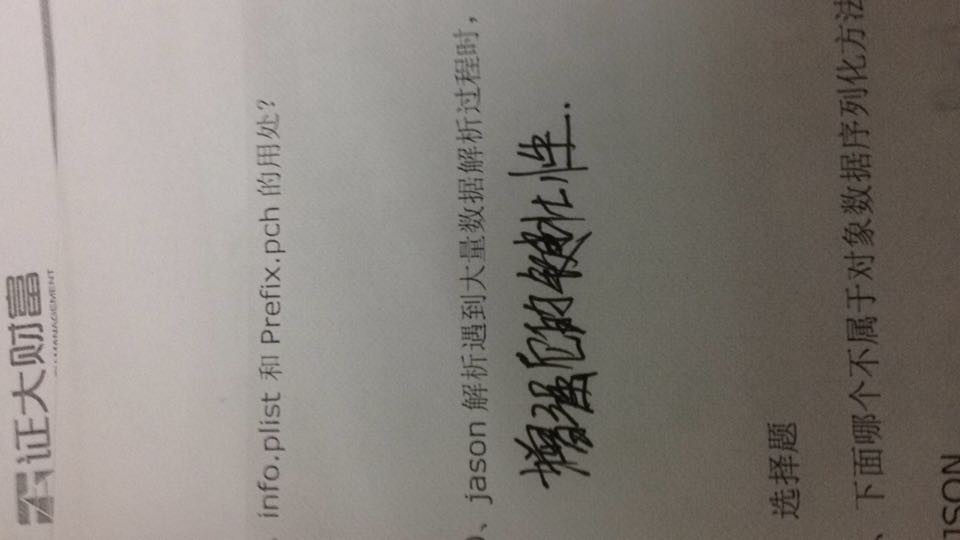 证大财富
MANAGEMENT
info.plist 和 Prefix.pch 的用处?
、jason 解析遇到大量数据解析过程时,
增强它的健壮性.
选择题
、下面哪个不属于对象数据序列化方法
JSON